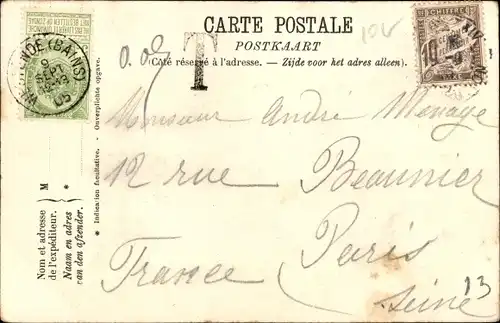 CARTE POSTALE
POSTKAART
(Côté réservé à l'adresse. – Zijde voor het adres alleen).
T
0.05
10
CHIFFRE
10
TAXE
(BAINS)
SEPT
05
Monsieur André Menage
12 rue Beaunier
Paris
France
Seine
13
Nom et adresse M
de l'expéditeur.
Naam en adres *
van den afzender.
* Indication facultative. - Onverplichte opgave.